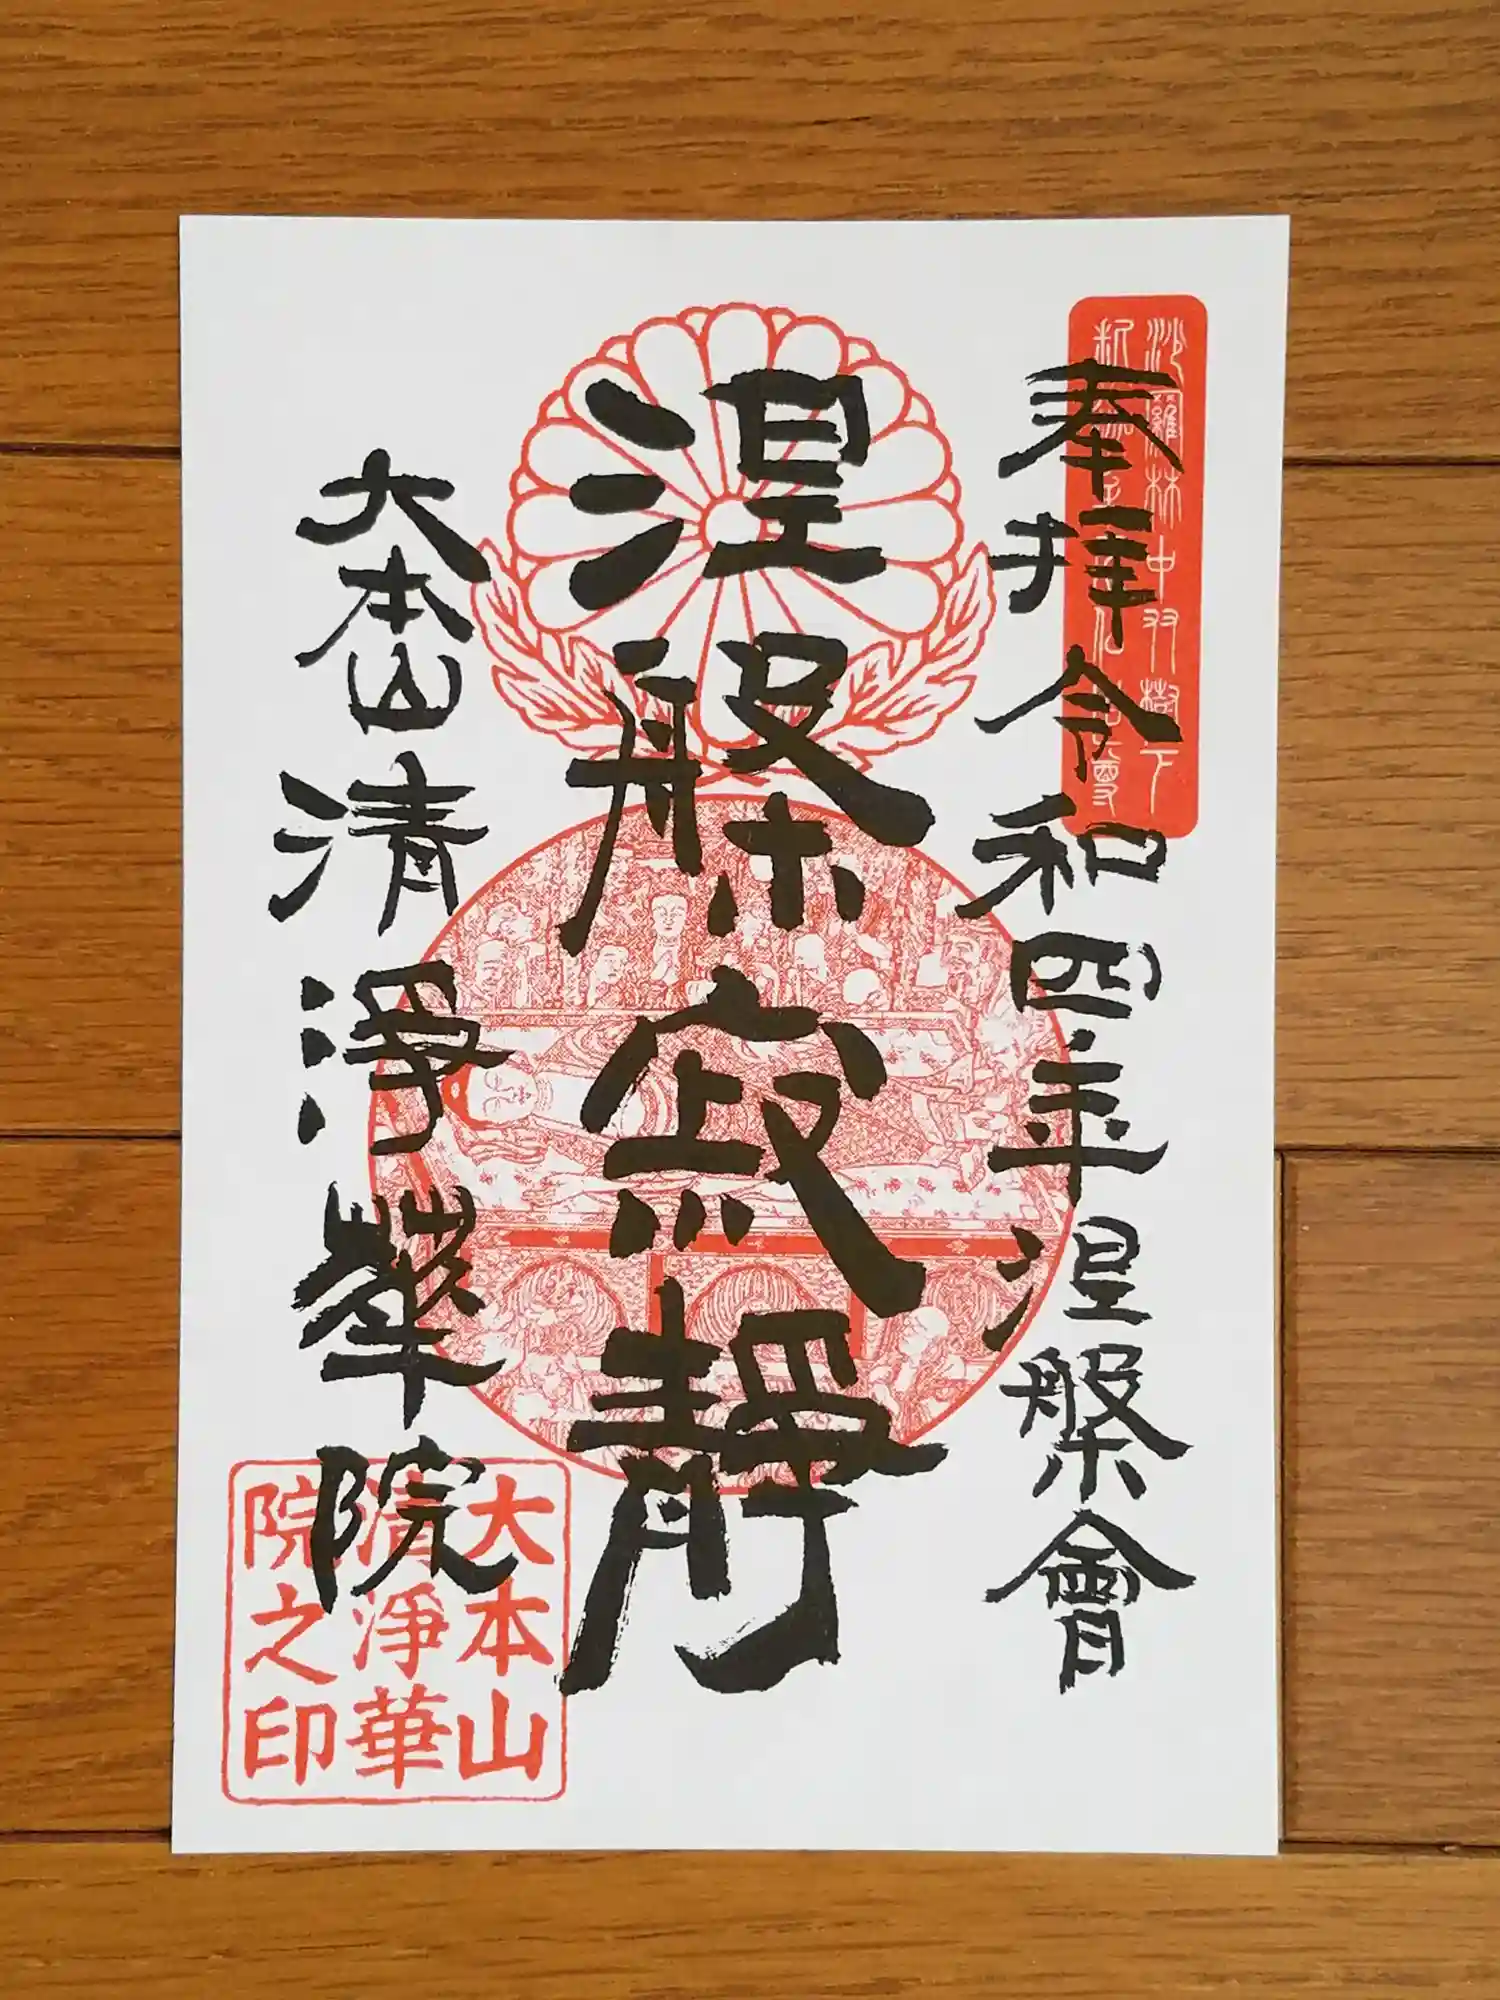 奉拝 令和四年 涅槃會
沙羅林中双樹下
涅槃寂靜
大本山 清淨華院
大本山
清淨華
院之印